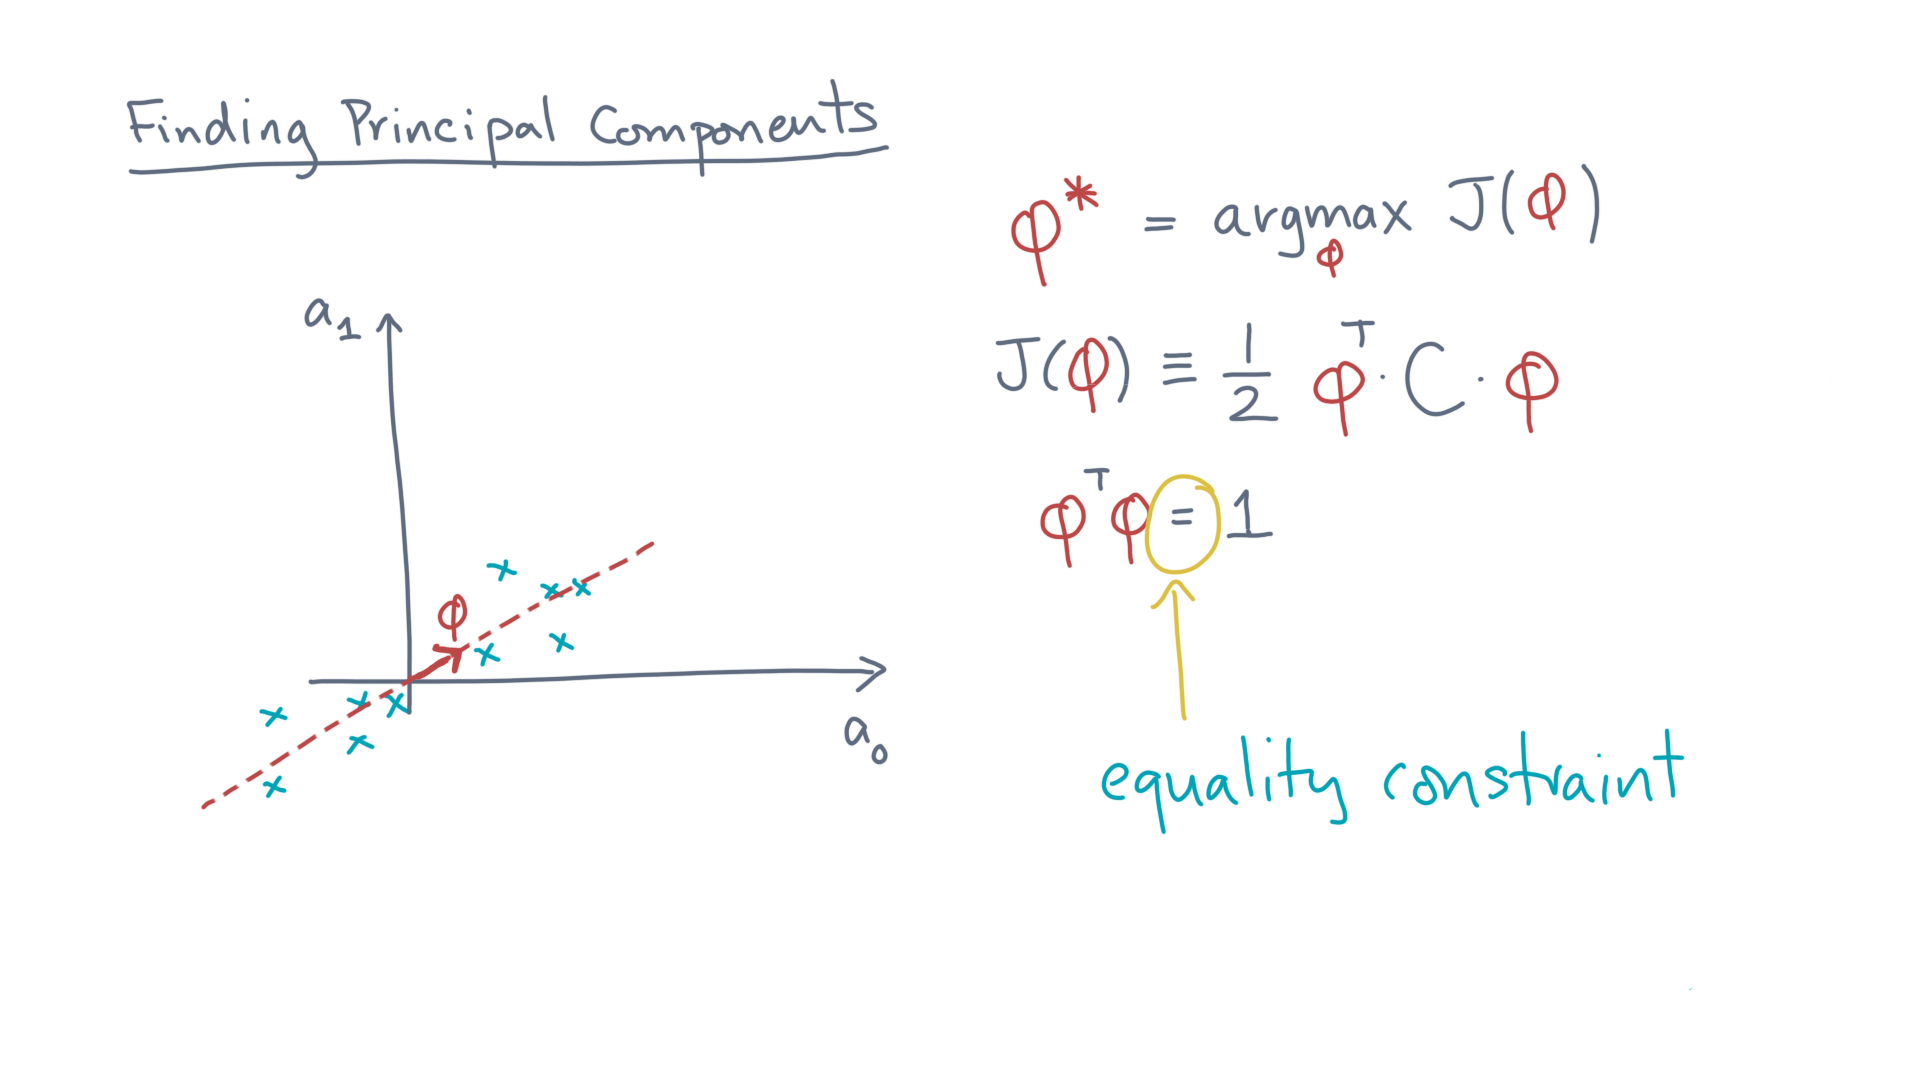 Finding Principal Components
φ* = argmax J(φ)
φ
J(φ) ≡ 1/2 φᵀ · C · φ
φᵀφ = 1
equality constraint
a₁
φ
a₀